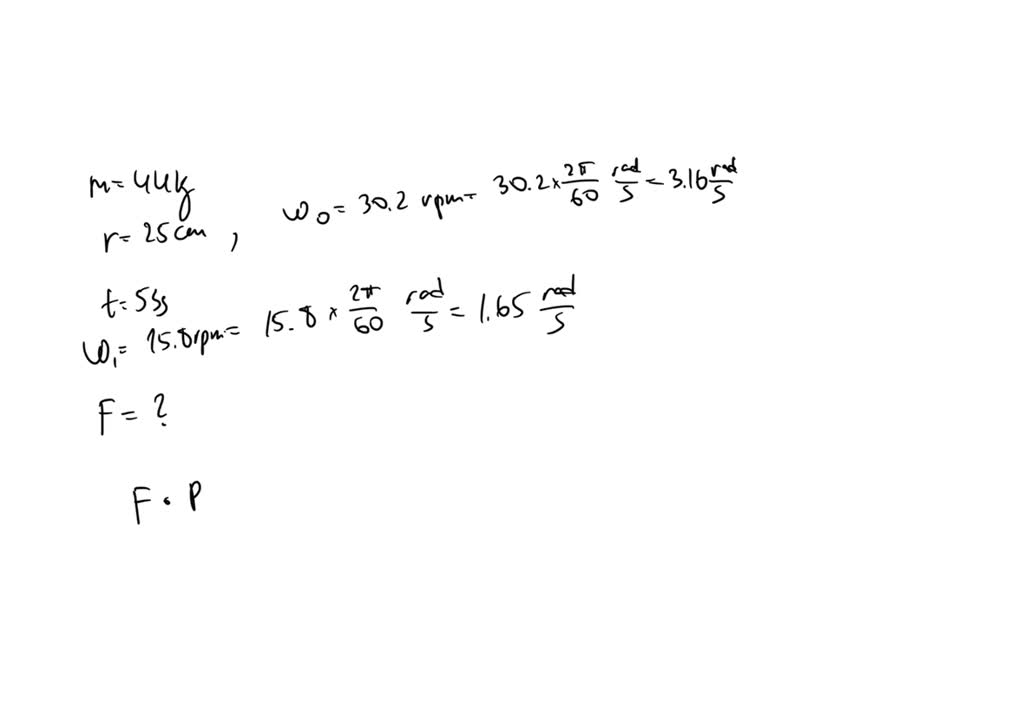 m = 44kg
r = 25 cm , ω₀ = 30.2 rpm = 30.2 × 2π/60 rad/s = 3.16 rad/s
t = 53s
ω₁ = 15.8 rpm = 15.8 × 2π/60 rad/s = 1.65 rad/s
F = ?
F · P